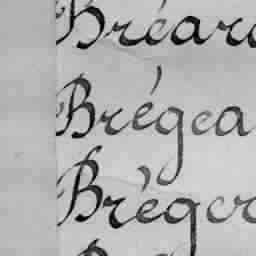 Bréard
Brégea
Bréger